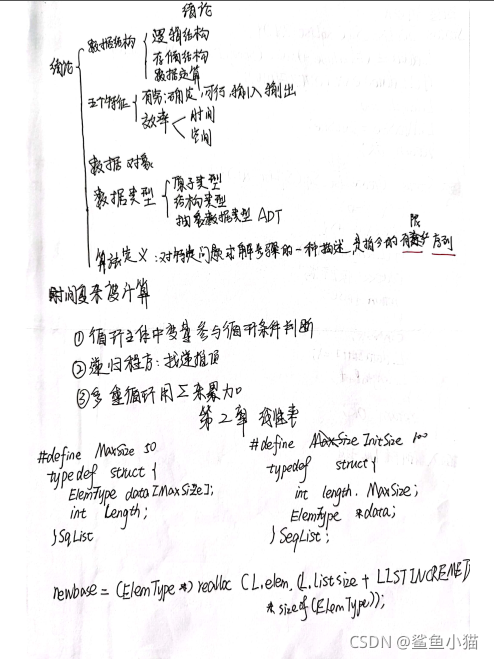 绪论
绪论
数据结构
逻辑结构
存储结构
数据运算
五个特征
有穷,确定,可行,输入输出
效率
时间
空间
数据对象
数据类型
原子类型
结构类型
抽象数据类型 ADT
算法定义:对特定问题求解步骤的一种描述,是指令的有限序列
时间复杂度计算
①循环主体中变量参与循环条件判断
②递归程序:找递推项
③多重循环用Σ来累加
第2章 线性表
#define MaxSize 50
typedef struct{
ElemType data[MaxSize];
int length;
}SqList
#define InitSize 100
typedef struct{
int length. MaxSize;
ElemType *data;
}SeqList;
newbase = (ElemType *) realloc (L.elem, (L.listsize + LISTINCREMENT)
* sizeof(ElemType));
CSDN @鲨鱼小猫